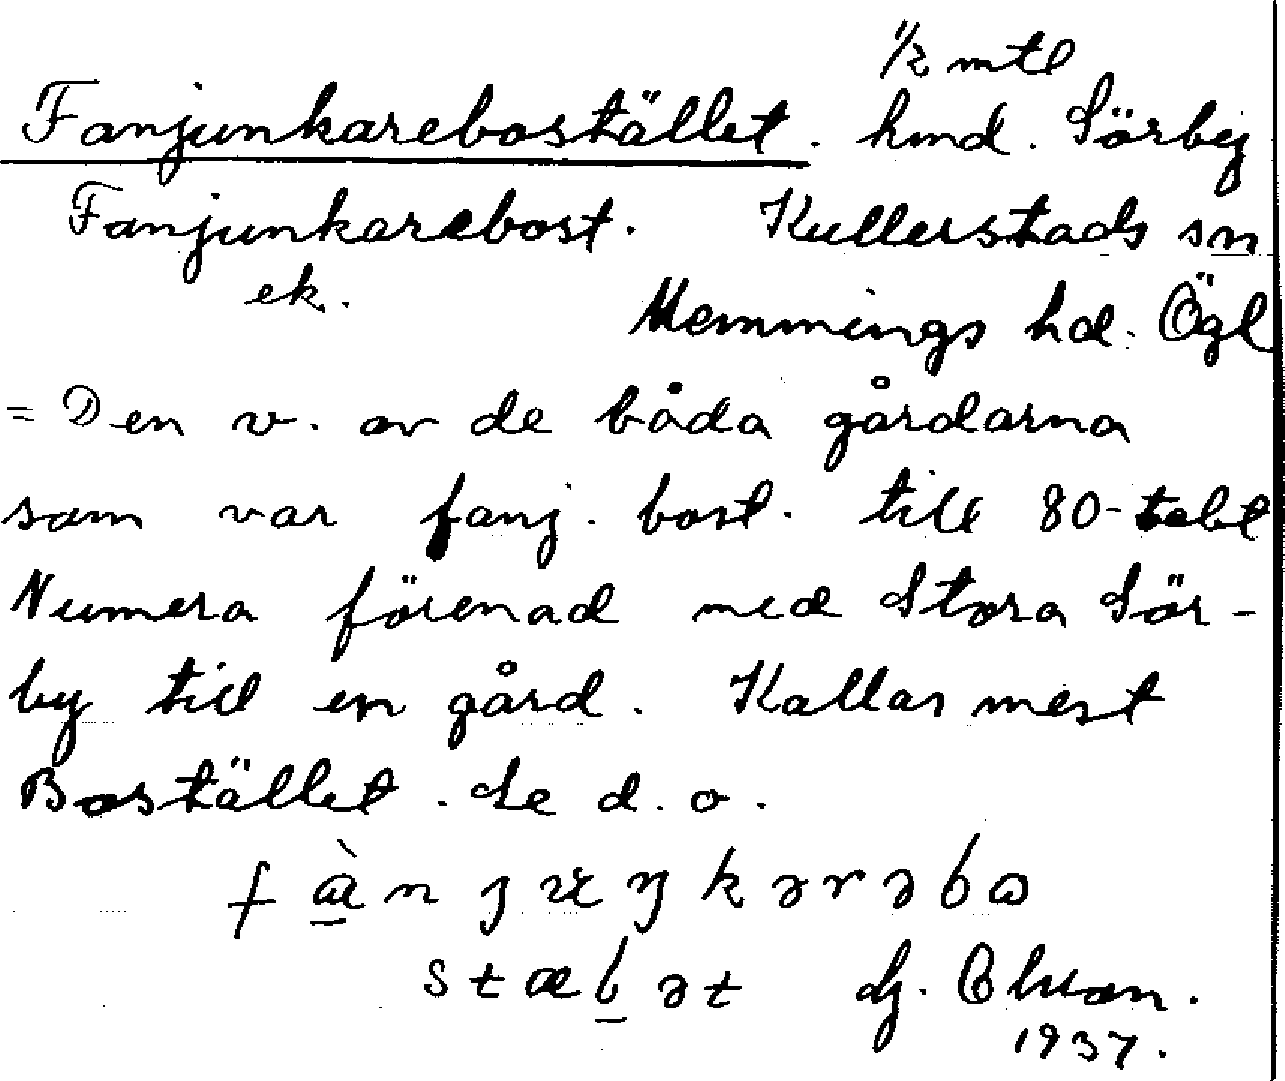 1/2 mtl
Fanjunkarebostället. hmd. Sörby
Fanjunkarebost. Kullerstads sn
ek.
Memmings hd. Ögl
= Den v. av de båda gårdarna
som var fanj. bost. till 80-talet
Numera förenad med Stora Sör-
by till en gård. Kallas mest
Bostället. Se d. o.
1937.